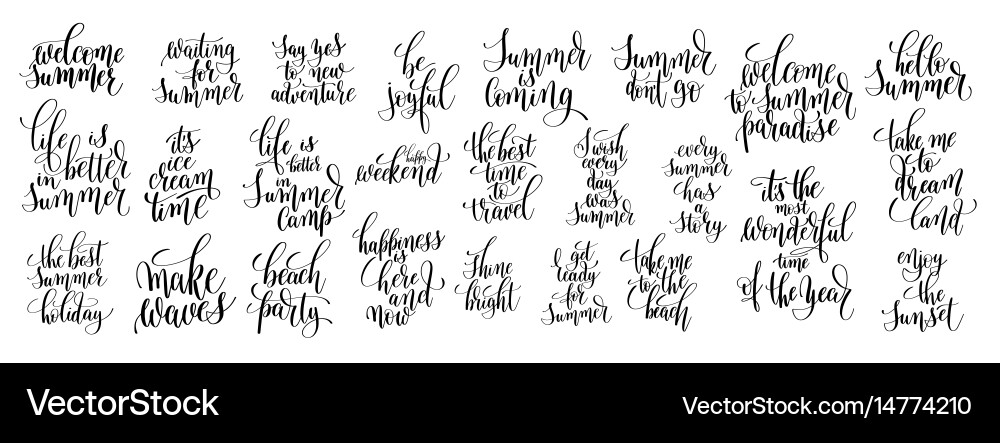 welcome
summer
waiting
for
summer
say yes
to new
adventure
be
joyful
summer
is
coming
summer
don't go
welcome
to summer
paradise
hello
summer
life is
better
in
summer
it's
ice
cream
time
life is
better
in
summer
camp
happy
weekend
the best
time
to
travel
I wish
every
day
was
summer
every
summer
has
a
story
it's the
most
wonderful
time
of the year
take me
to
dream
land
the best
summer
holiday
make
waves
beach
party
happiness
is
here
and
now
shine
bright
I get
ready
for
summer
take me
to the
beach
enjoy
the
sunset
VectorStock
VectorStock.com/14774210